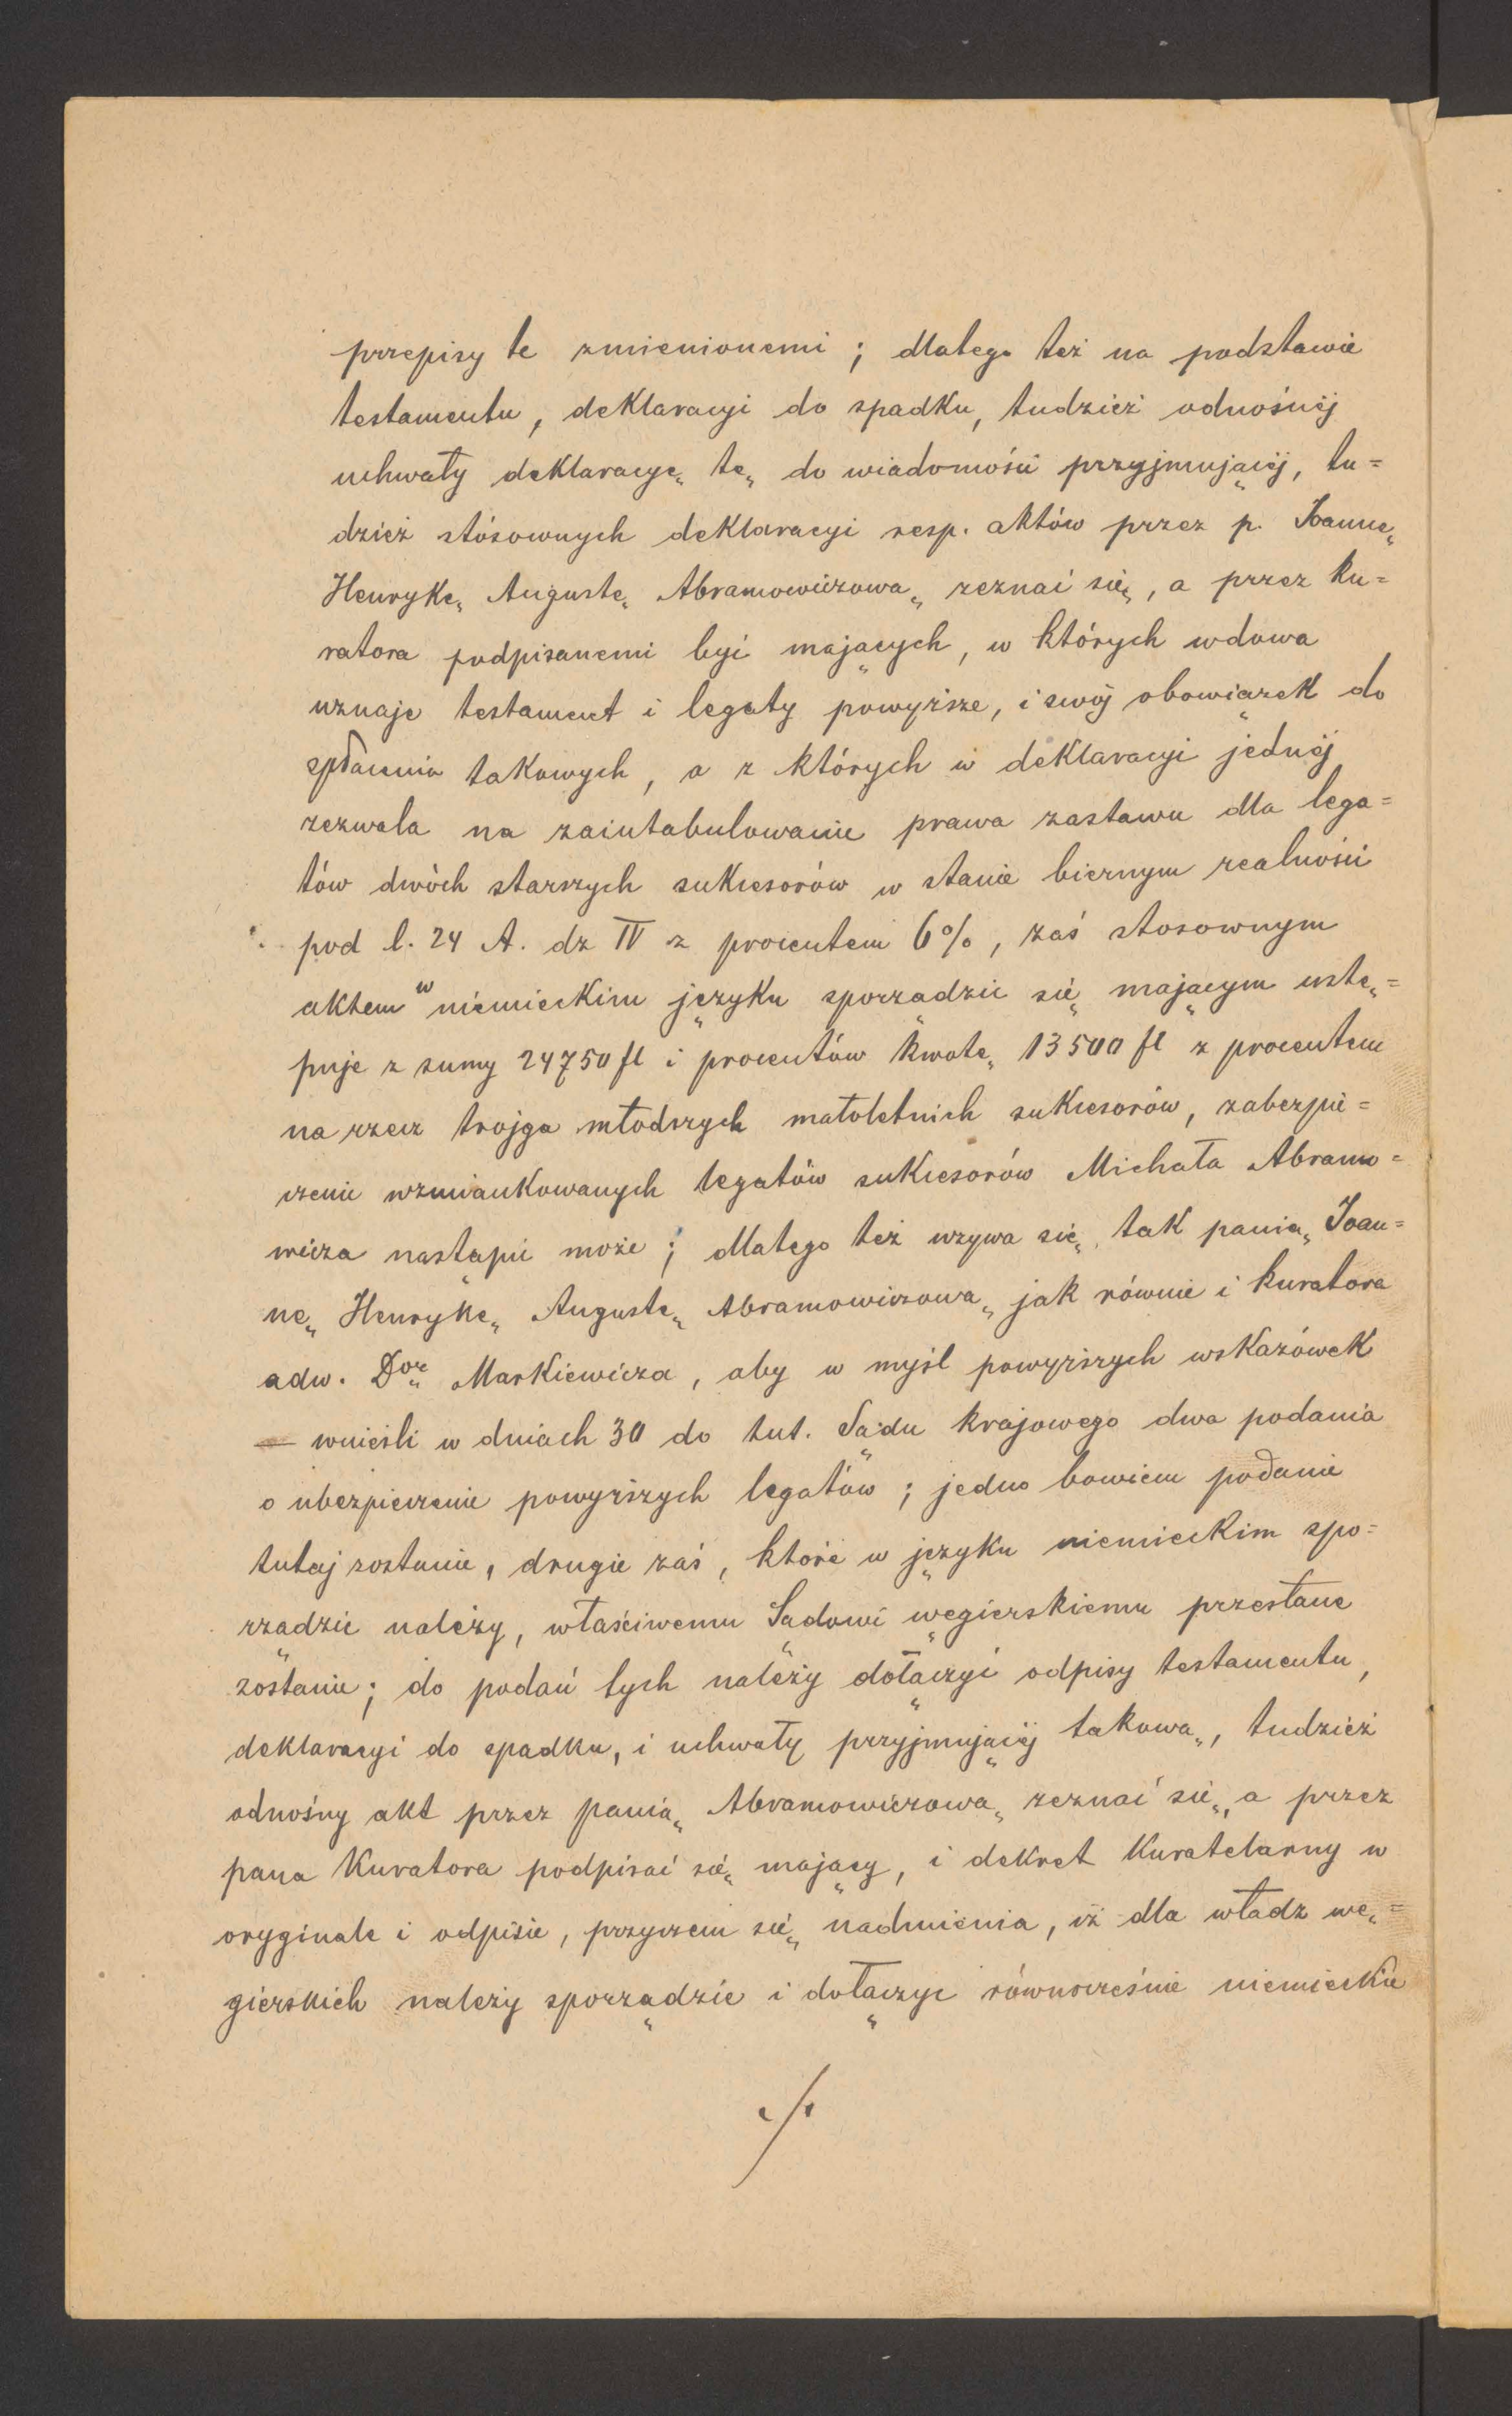 przepisy te zmienionemi ; dlatego też na podstawie
testamentu, deklaracyi do spadku, tudzież odnośnéj
uchwały deklaracyę tę do wiadomości przyjmującéj, tu=
dzież stósownych deklaracyi resp. aktów przez p. Joannę
Henrykę Augustę Abramowiczową zeznać się, a przez ku=
ratora podpisanemi być mających, w których wdowa
uznaje testament i legaty powyższe, i swój obowiązek do
spłacenia takowych, a z których w deklaracyi jednéj
zezwala na zaintabulowanie prawa zastawu dla lega=
tów dwóch starszych sukcesorów w stanie biernym realności
pod l. 24 A. dz IV z procentem 6%, zaś stosownym
aktem w niemieckim języku sporządzić się mającym ustę=
puje z sumy 24750 fl i procentów kwotę 13500 fl z procentem
na rzecz trojga młodszych małoletnich sukcesorów, zabezpie=
czenie wzmiankowanych legatów sukcesorów Michała Abramo=
wicza nastąpić może ; dlatego też wzywa się tak panią Joan=
nę Henrykę Augustę Abramowiczową jak równie i kuratora
adw. Dora Markiewicza, aby w myśl powyższych wskazówek
— wnieśli w dniach 30 do tut. Sądu krajowego dwa podania
o ubezpieczenie powyższych legatów ; jedno bowiem podanie
tutaj zostanie, drugie zaś, które w języku niemieckim spo=
rządzić należy, właściwemu Sądowi węgierskiemu przesłane
zostanie ; do podań tych należy dołączyć odpisy testamentu,
deklaracyi do spadku, i uchwały przyjmującéj takową, tudzież
odnośny akt przez panią Abramowiczową zeznać się, a przez
pana Kuratora podpisać się mający, i dekret kuratelarny w
oryginale i odpisie, przyczem się nadmienia, iż dla władz wę=
gierskich należy sporządzić i dołączyć równocześnie niemieckie
./.